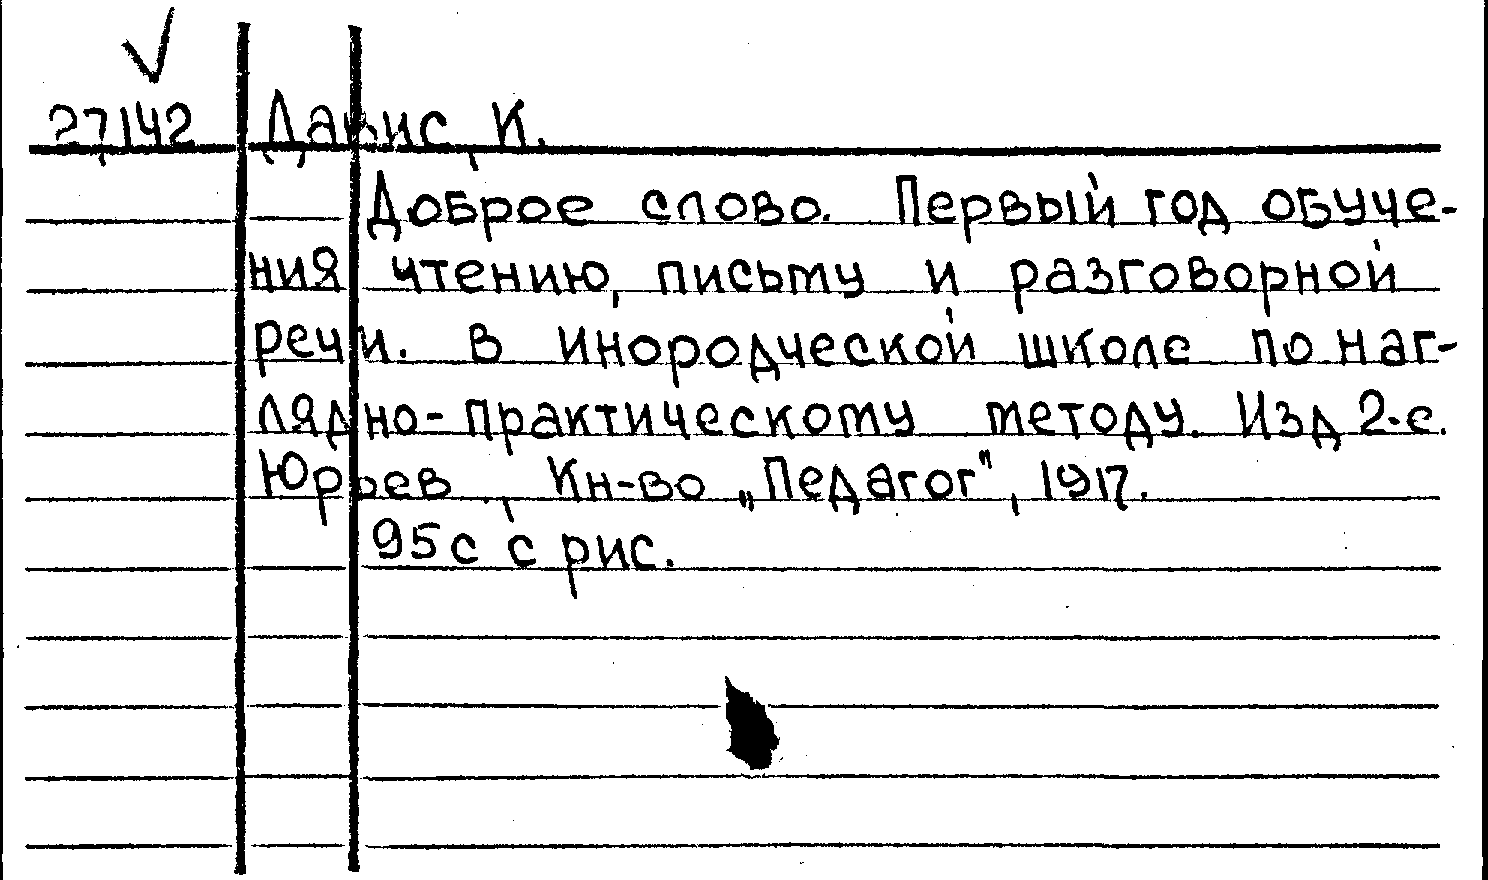 27142 Давис, К.
Доброе слово. Первый год обуче-
ния чтению, письму и разговорной
речи. в инородческой школе по наг-
лядно-практическому методу. Изд 2-е.
Юрьев, Кн-во „Педагог", 1917.
95с с рис.